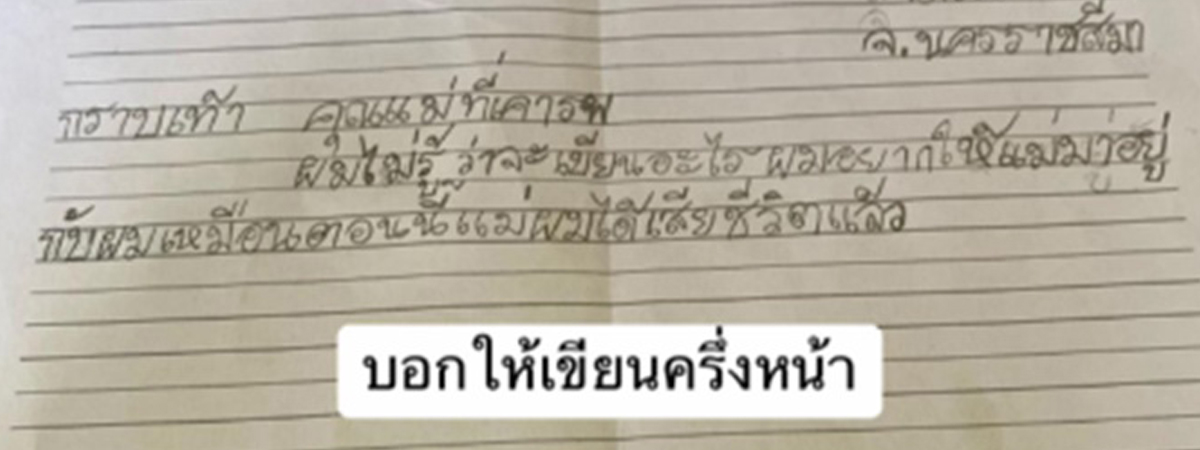 จ.นครราชสีมา
กราบเท้า คุณแม่ที่เคารพ
ผมไม่รู้ว่าจะเขียนอะไร ผมอยากให้แม่มาอยู่
กับผมเหมือนตอนนี้แม่ผมได้เสียชีวิตแล้ว
บอกให้เขียนครึ่งหน้า